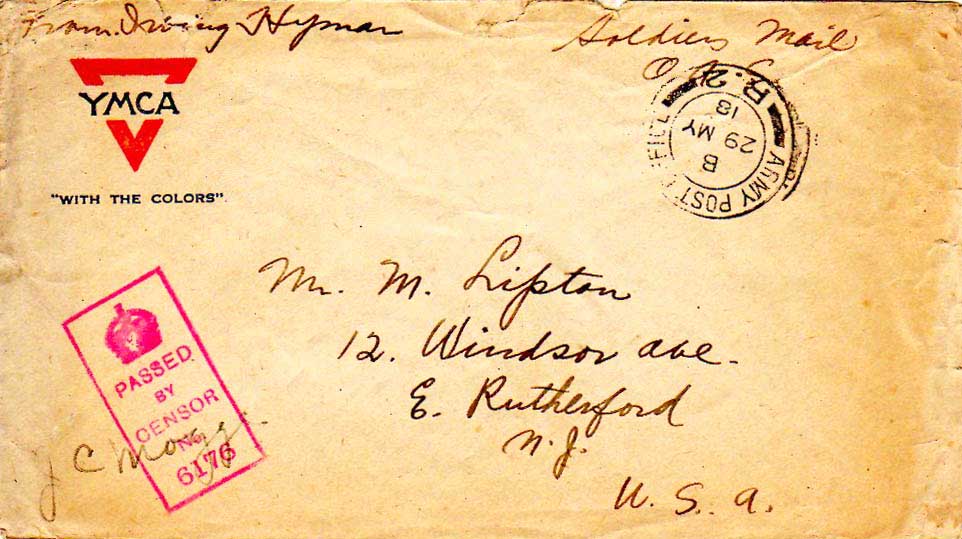 From. Irving Hyman
Soldiers Mail
O
YMCA
"WITH THE COLORS"
ARMY POST OFFICE
R.2
B
29 MY
18
Mr. M. Lipton
12. Windsor ave.
E. Rutherford
N.J.
U.S.A.
PASSED
BY
CENSOR
No.
6176
J C